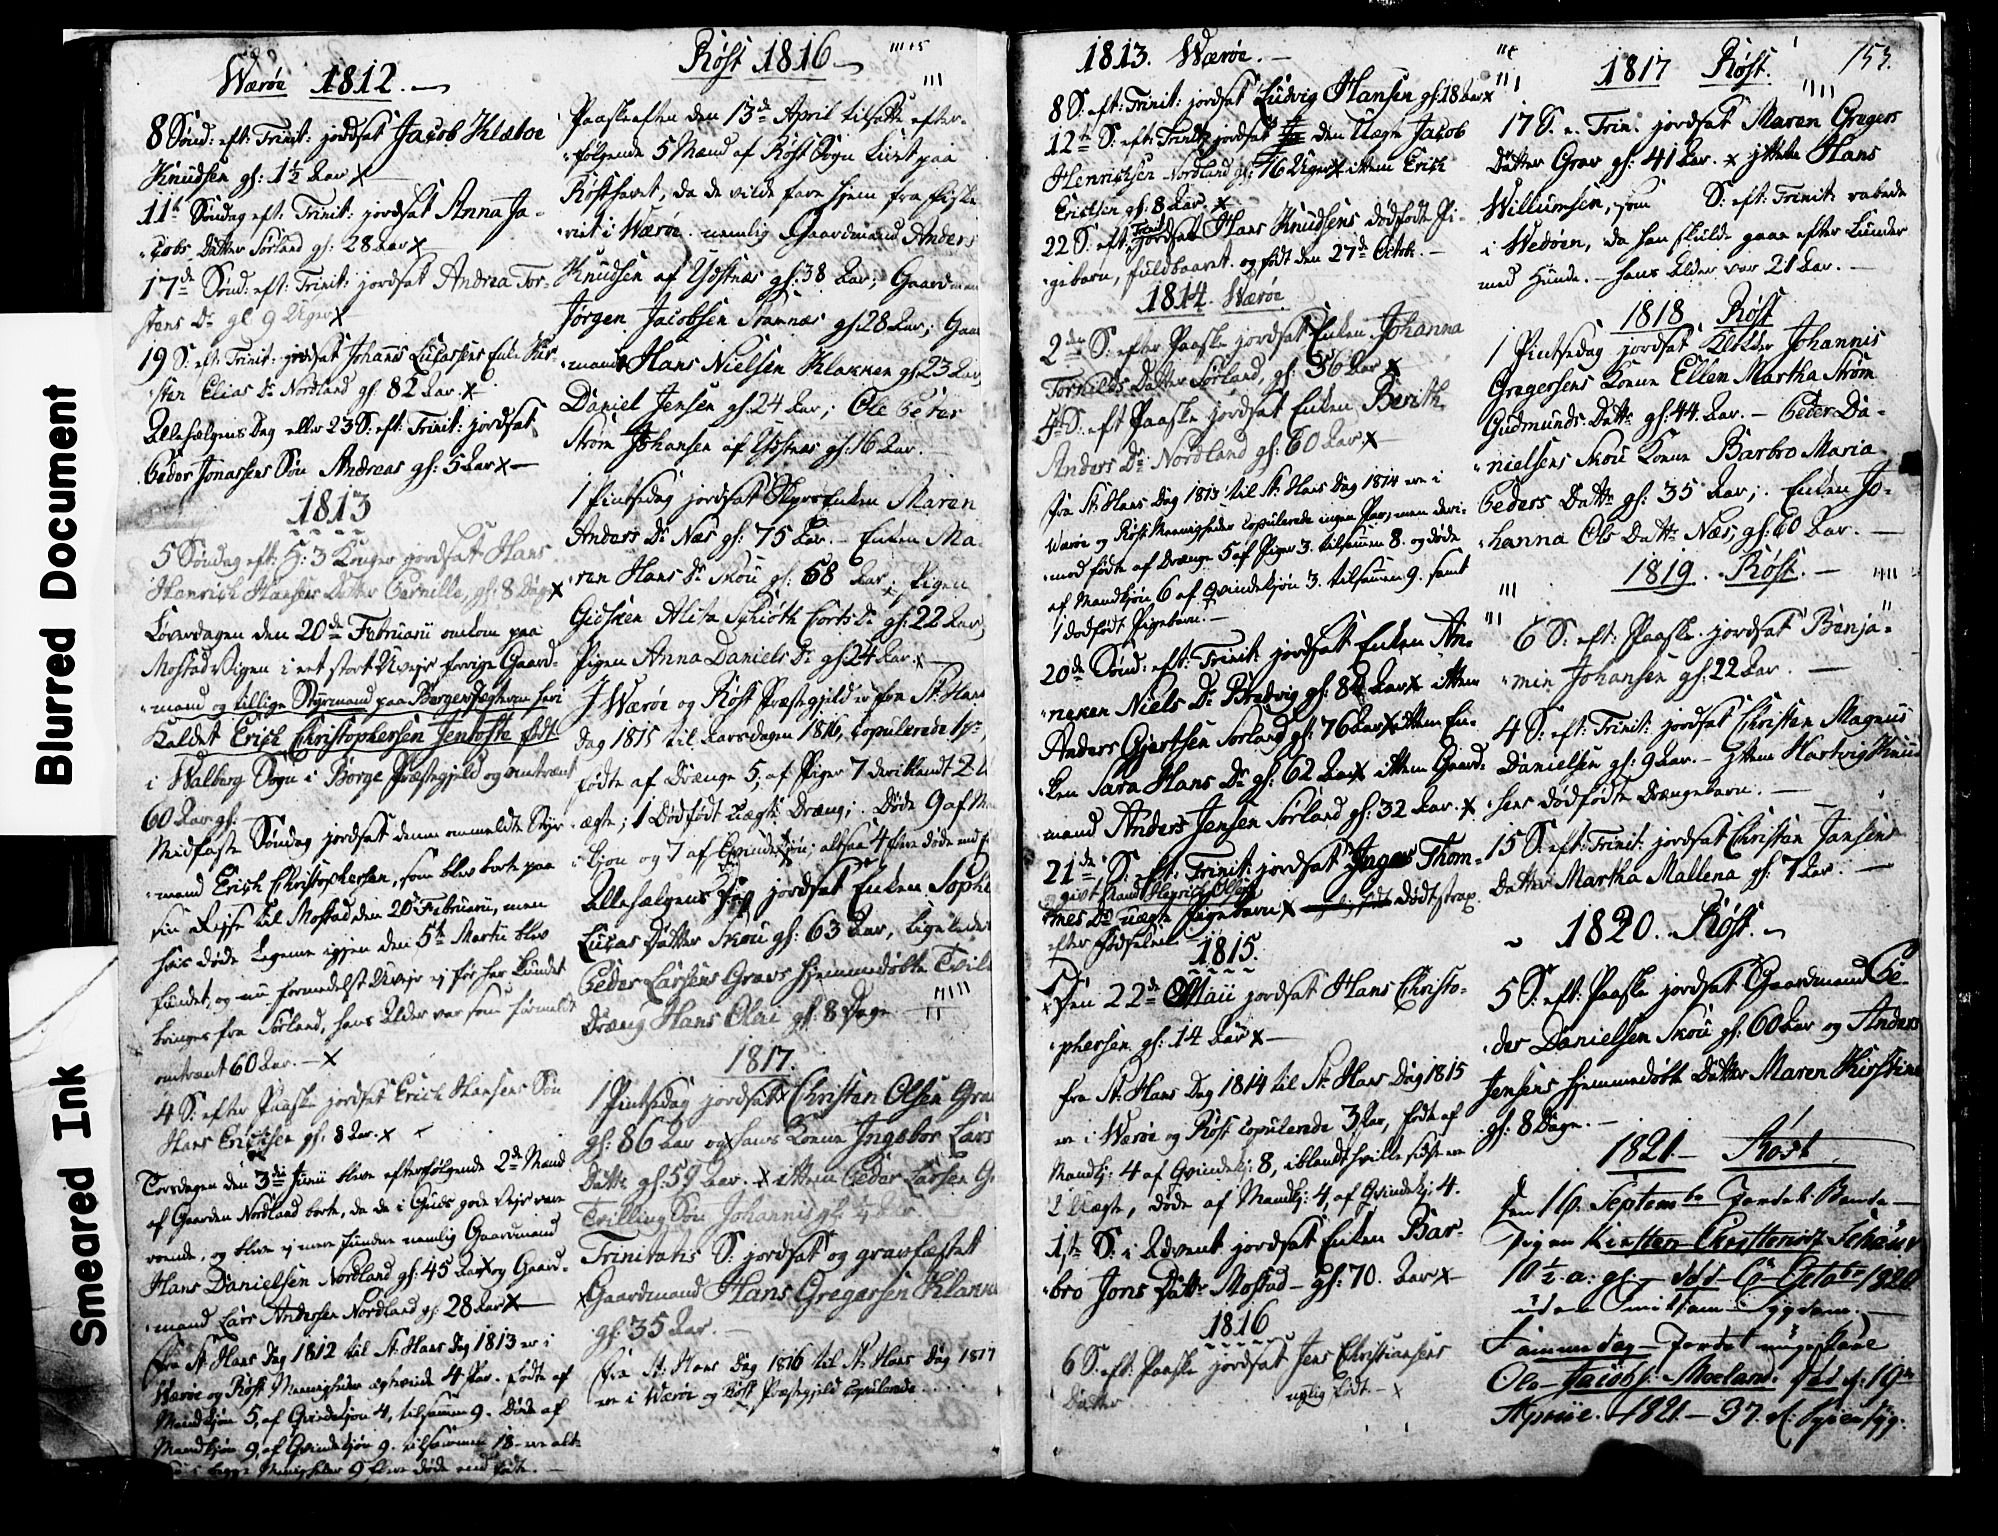 Blurred Document
Smeared Ink
Wærøe 1812.
8 Sønd: eft: Trinit: jordsat Jacob Klæboe
Knudsen gl: 1½ Aar x
11te Søndag eft: Trinit: jordsat Anna Ja-
cobs Datter Sørland gl: 28 Aar x
17de Sønd: eft: Trinit: jordsat Andrea Tor-
stens Dr gl. 9 Uger x
19 S. eft: Trinit: jordsat Johannes Lucassens Enke Kir-
sten Elias Dr Nordland gl: 82 Aar. x
Allehelgens Dag eller 23 S. eft: Trinit: jordsat
Peder Jonassens Søn Andreas gl: 5 Aar x
1813
5 Søndag eft: H: 3 Konger jordsat Hans
Henrich Hansens Datter Pernille, gl: 8 Dage x
Løverdagen den 20de Februarii omkom paa
Mostad Vigen i et stort Uvejr forrige Gaard-
mand og tillige Styrmand paa Borgerjægten
Kaldet Erich Christophersen Jentofte født
i Walberg Sogn i Borge Præstegjeld og omtrent
60 Aar gl:
Midfaste Søndag jordsat denne ommeldte Styr-
mand Erich Christophersen, som blev borte paa
sin Rejse til Mostad den 20de Februarii, men
hvis døde Legeme igjen den 5te Martii blev
fundet, og nu formedelst Uvejr ej før har kundet
bringes fra Sørland, hans Alder var som formeldt
omtrent 60 Aar. x
4 S. efter Paaske jordsat Erich Hansens Søn
Hans Erichsen gl: 8 Aar. x
Torsdagen den 3die Junii bleve efterfølgende 2de Mænd
af Gaarden Nordland borte, da de i Guds gode Vejr vare
roende, og bleve ej mere fundne nemlig Gaardmand
Hans Danielsen Nordland gl: 45 Aar x og Gaard-
mand Lars Andersen Nordland gl: 28 Aar x
Fra St: Hans Dag 1812 til St: Hans Dag 1813 er i
Wærøe og Røst Menigheder ægteviede 4 Par. fødte af
Mandkjøn 5, af Qvindekjøn 4, tilsammen 9. Døde af
Mandkjøn 9, af Qvindekjøn 9. tilsammen 18 - ere alt-
begge Menigheder 9 flere døde end fødte.
Røst 1816
Paaskeaften den 13de April tilsatte efter-
følgende 5 Mænd af Røst Sogn Livet paa
Røsthavet, da de vilde fare hjem fra Fiske-
riet i Wærøe. nemlig Gaardmand Anders
Knudsen af Ystnæs gl: 38 Aar; Gaardman
Jørgen Jacobsen Stavnæs gl 28 Aar; Gaar
mand Hans Nielsen Klakken gl: 23 Aar
Daniel Jensen gl: 24 Aar; Ole Peder
Strøm Johansen af Ystnæs gl: 16 Aar.
1 Pintsedag jordsat Enken Maren
Anders Dr Næs gl: 75 Aar. - Enken Ma-
ren Hans Dr Skou gl: 68 Aar; Pigen
Gidsken Alita Schiøth Dr gl: 22 Aar,
Pigen Anna Daniels Dr gl: 24 Aar. x
I Wærøe og Røst Præstegjeld er fra St: Hans
Dag 1815 til Aarsdagen 1816, copulerede 1
fødte af Drænge 5, af Piger 7 deriblandt 2
ægte; 1 Dødfødt uægte Dræng; Døde 9 af M
kjøn og 7 af Qvindekjøn; altsaa 4 flere døde end f
Allehelgens Dag jordsat Enken Sophi
Lucas Datter Skou gl: 63 Aar, ligeledes
Peder Larsens Graves hjemmedøbte Tvil
Dræng Hans Olai gl: 8 Dage
1817.
1 Pintsedag jordsat x Christen Olsen Grav
gl: 86 Aar og x hans Kone Ingebor Lars
Datt: gl: 59 Aar. x ittem Peder Larsen G
Tvilling Søn Johannis gl: ¼ Aar.
Trinitatis S: jordsat og gravfæstet
x Gaardmand Hans Gregersen Klakk
gl: 35 Aar.
Fra St: Hans Dag 1816 til St: Hans Dag 1817
ere i Wærøe og Røst Præstegjeld Copulerede
1813. Wærøe.
8 S. eft: Trinit: jordsat Ludvig Hansen gl: 18 Aar x
12te S: eft: Trinit: jordsat den Uægte Jacob
Henrichsen Nordland gl: 16 Uger x ittem Erich
Erichsen gl: 8 Aar. x
22 S. eft: Trinit jordsat Hans Knudsens dødfødte Pi-
gebarn, fuldbaaret og født den 27de Octob:
1814. Wærøe
2den S: efter Paaske jordsat Enken Johanna
Tornilds Datter Sørland, gl: 56 Aar x
4de S: eft Paaske jordsat Enken Berith
Anders Dr Nordland gl: 60 Aar x
Fra St: Hans Dag 1813 til St: Hans Dag 1814 ere i
Wærøe og Røst Menigheder Copulerede ingen Par, men deri-
mod fødte af Drænge 5 af Piger 3. tilsammen 8. og døde
af Mandkjøn 6 af Qvindekjøn 3. tilsammen 9. samt
1 dødfødt Pigebarn.
20de Sønd: eft: Trinit: jordsat Enken An-
neken Niels Dr Bredvig gl: 84 Aar x ittem
Anders Gjertsen Sørland gl: 76 Aar x ittem En-
ken Sara Hans Dr gl: 62 Aar x ittem Gaard-
mand Anders Jensen Sørland gl: 32 Aar. x
21de S: eft: Trinit: jordsat Inger Thom-
mes Dr uægte Pigebarn x dødt strax
efter Fødselen
1815.
Den 22de Maii jordsat Hans Christo-
phersen gl: 14 Aar x
Fra St: Hans Dag 1814 til St: Hans Dag 1815
ere i Wærøe og Røst Copulerede 3 Par, fødte af
Mandkj: 4 af Qvindekj: 8, iblandt hvilke sidste ere
2 Uægte, døde af Mandkj: 4, af Qvindekj: 4.
1ste S: i Advent jordsat Enken Bar-
bro Jons Datt: Mostad - gl: 70. Aar x
1816
6 S. eft: Paaske jordsat Jens Christiansens
Datter uægte født. - x
1817 Røst. 153.
17 S. e. Trin. jordsat Maren Gregers
Datter Grav gl: 41 Aar. x ittem Hans
Willumsen, som S: eft: Trinit: rabede
i Wedøen, da han skulde gaae efter Lunder
med Hunde. - hans Alder var 21 Aar.
1818 Røst
1 Pintsedag jordsat Klokker Johannis
Gregersens Kone Ellen Martha Strøm
Gudmunds Datt: gl: 44 Aar. - Peder Da-
nielsens Skou Kone Barbro Maria
Peders Datt: gl: 35 Aar; Enken Jo-
hanna Ols Datt: Næs, gl: 60 Aar.
1819. Røst.
6 S. eft: Paaske jordsat Benja-
min Johansen gl: 22 Aar.
4 S: eft: Trinit: jordsat Christen Magnus
Danielsen gl: 9 Aar. - Ittem Hartvig Knud-
sens dødfødte Drængebarn.
15 S. eft: Trinit: jordsat Christen Jansens
Datter Martha Mallena gl: 7 Aar.
1820. Røst.
5 S: eft: Paaske jordsat Gaardmand Pe-
der Danielsen Skou gl: 60 Aar og Anders
Jensens hjemmedøbte Datter Maren Kirstine
gl: 8 Dage.
1821. Røst
Den 16. Septembr Jordet Bonde-
pigen Kirsten Schau
10½ a: gl: død 6 Octbr 1820
Samme dag - Jordet
Ole Jacobs: Moeland. død d: 19de
Aprile. 1821. - 37.